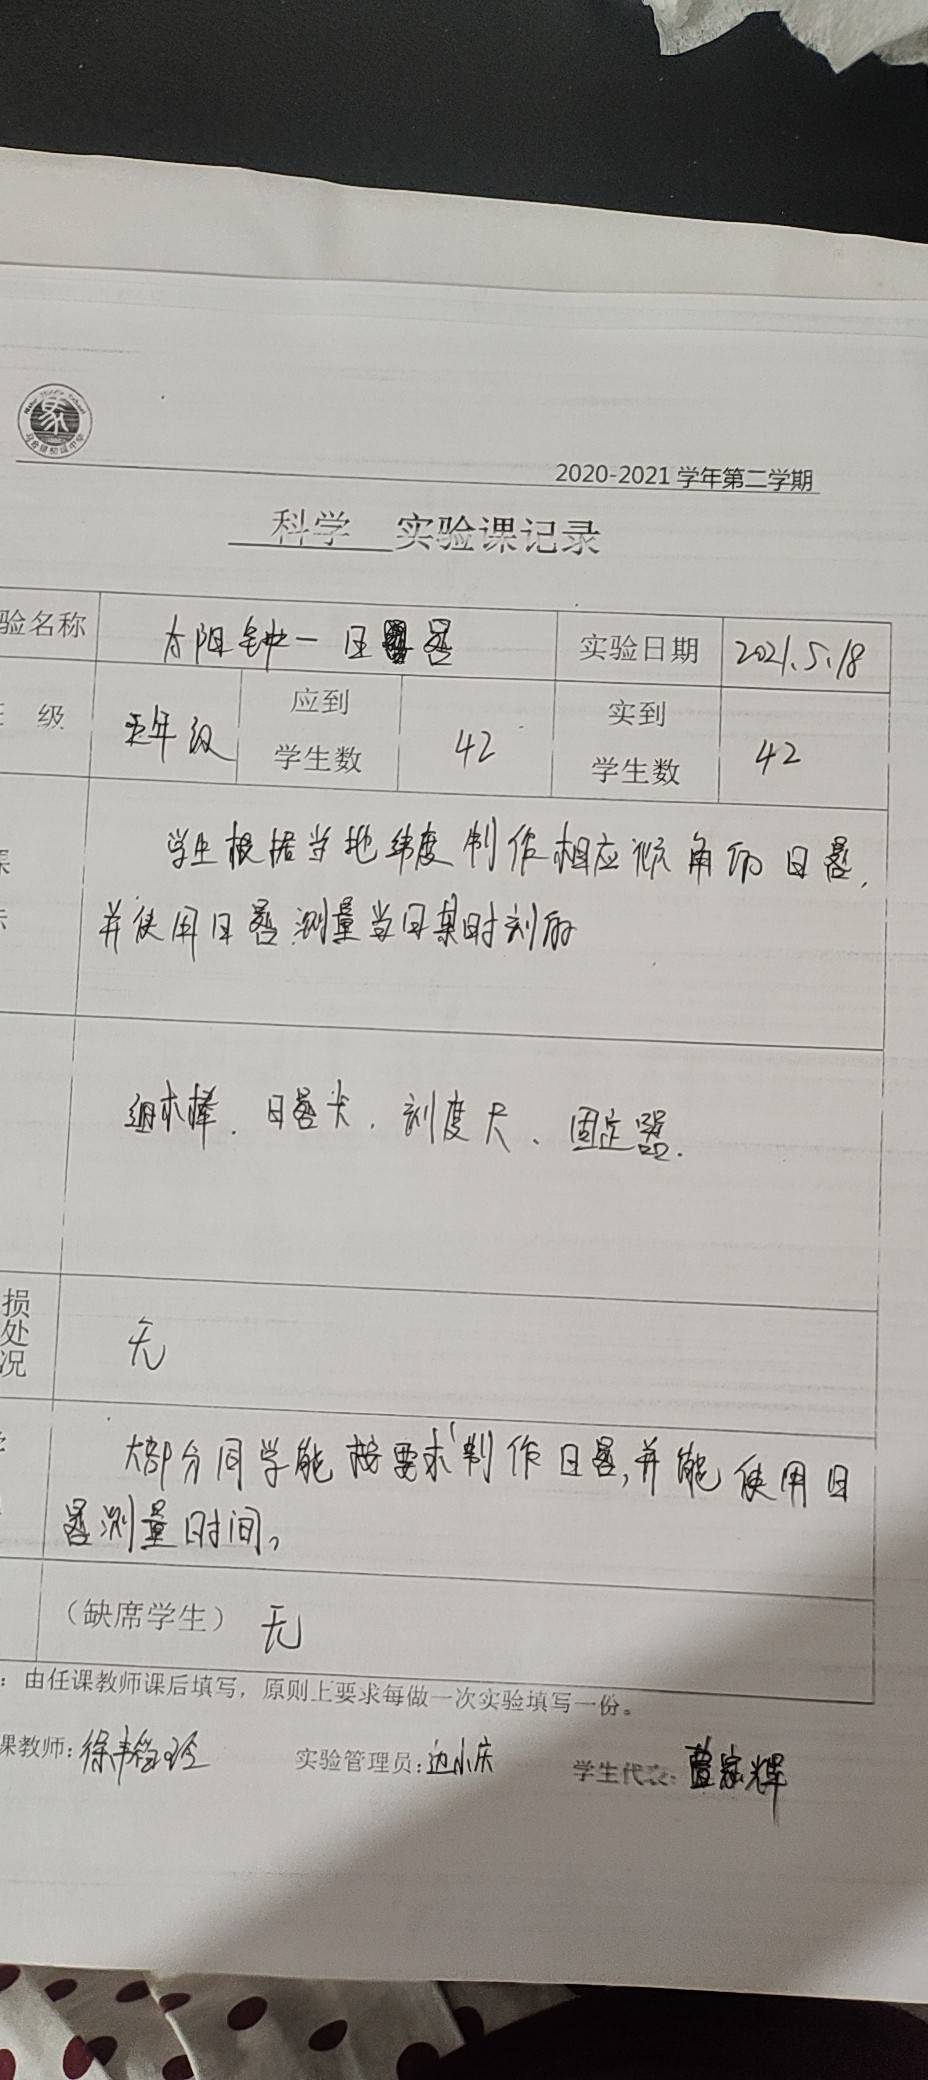 2020-2021 学年第二学期
科学 实验课记录
验名称 太阳钟一日晷 实验日期 2021.5.18
级 五年级 应到学生数 42 实到学生数 42
学生根据当地纬度制作相应倾角的日晷,
并使用日晷测量当日某时刻的
细木棒、日晷尖、刻度尺、固定器.
损
处
况
无
大部分同学能按要求制作日晷,并能使用日
晷测量时间。
(缺席学生) 无
:由任课教师课后填写,原则上要求每做一次实验填写一份。
课教师: 实验管理员:边小庆 学生代表: